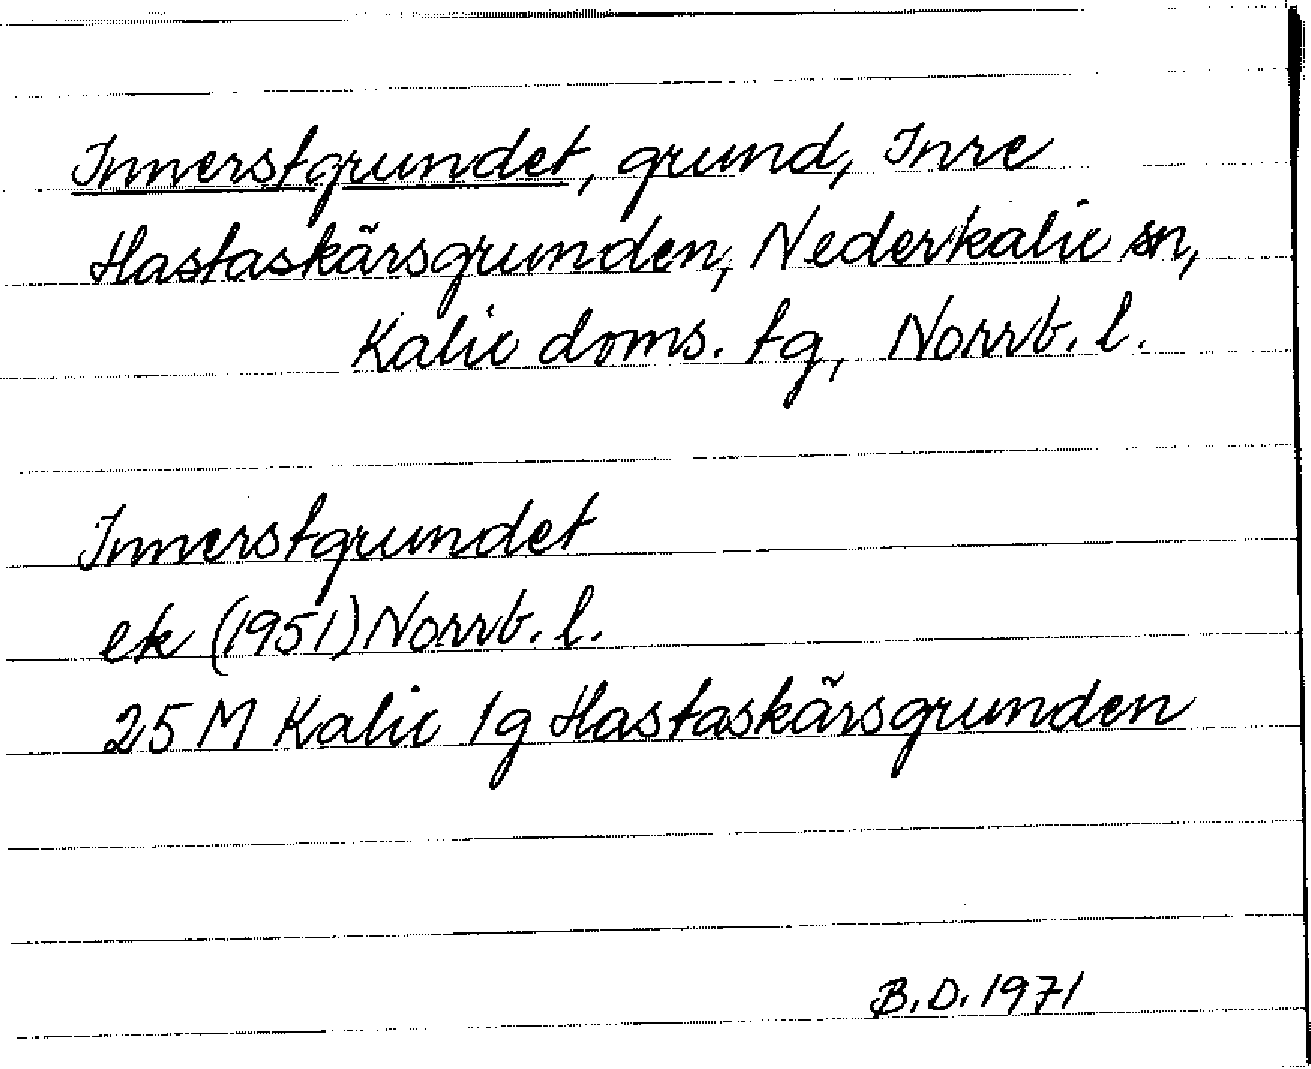 Innerstgrundet, grund, Inre
Hastaskärsgrunden, Nederkalix sn,
Kalix doms. tg, Norrb. l.
Innerstgrundet
ek (1951) Norrb. l.
25 M Kalix 1g Hastaskärsgrunden
B.D. 1971